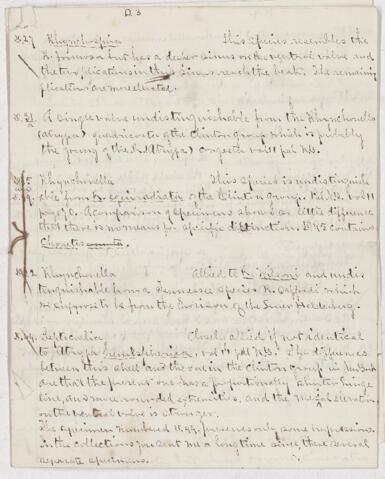 D.3
Rhynchospira This species resembles the
R. formosa but has a deeper sinus on the ventral valve and
the two plications in this sinus reach the beak. The remaining
plications are more elevated.
A single valve undistinguishable from the Rhynchonella
(atrypa) quadricosta of the Clinton group which is probably
(the young of the
Rhynchonella This species is undistinguish
able from of the Clinton Group. Pal. N.Y. vol 11
page 70. A comparison of specimens shows so little difference
that there is no means for specific distinction. contains
Chonetes cornuta.
Rhynchonella Allied to R. Wilsoni and undis
tinguishable from a Tennessee species R. Saffordi which
we suppose to be from the horizon of the Lower Helderberg.
Leptocoelia Closely allied if not identical
to Atrypa hemispherica, vol 11 pal N.Y. The differences
between this shell and the one in the Clinton group in New York
are that the present one has a proportionally shorter hinge
line, and more rounded extremities, and the mesial elevation
on the ventral valve is stronger.
The specimen numbered preserves only some impressions.
In the collections you sent me a long time since, there several
separate specimens.